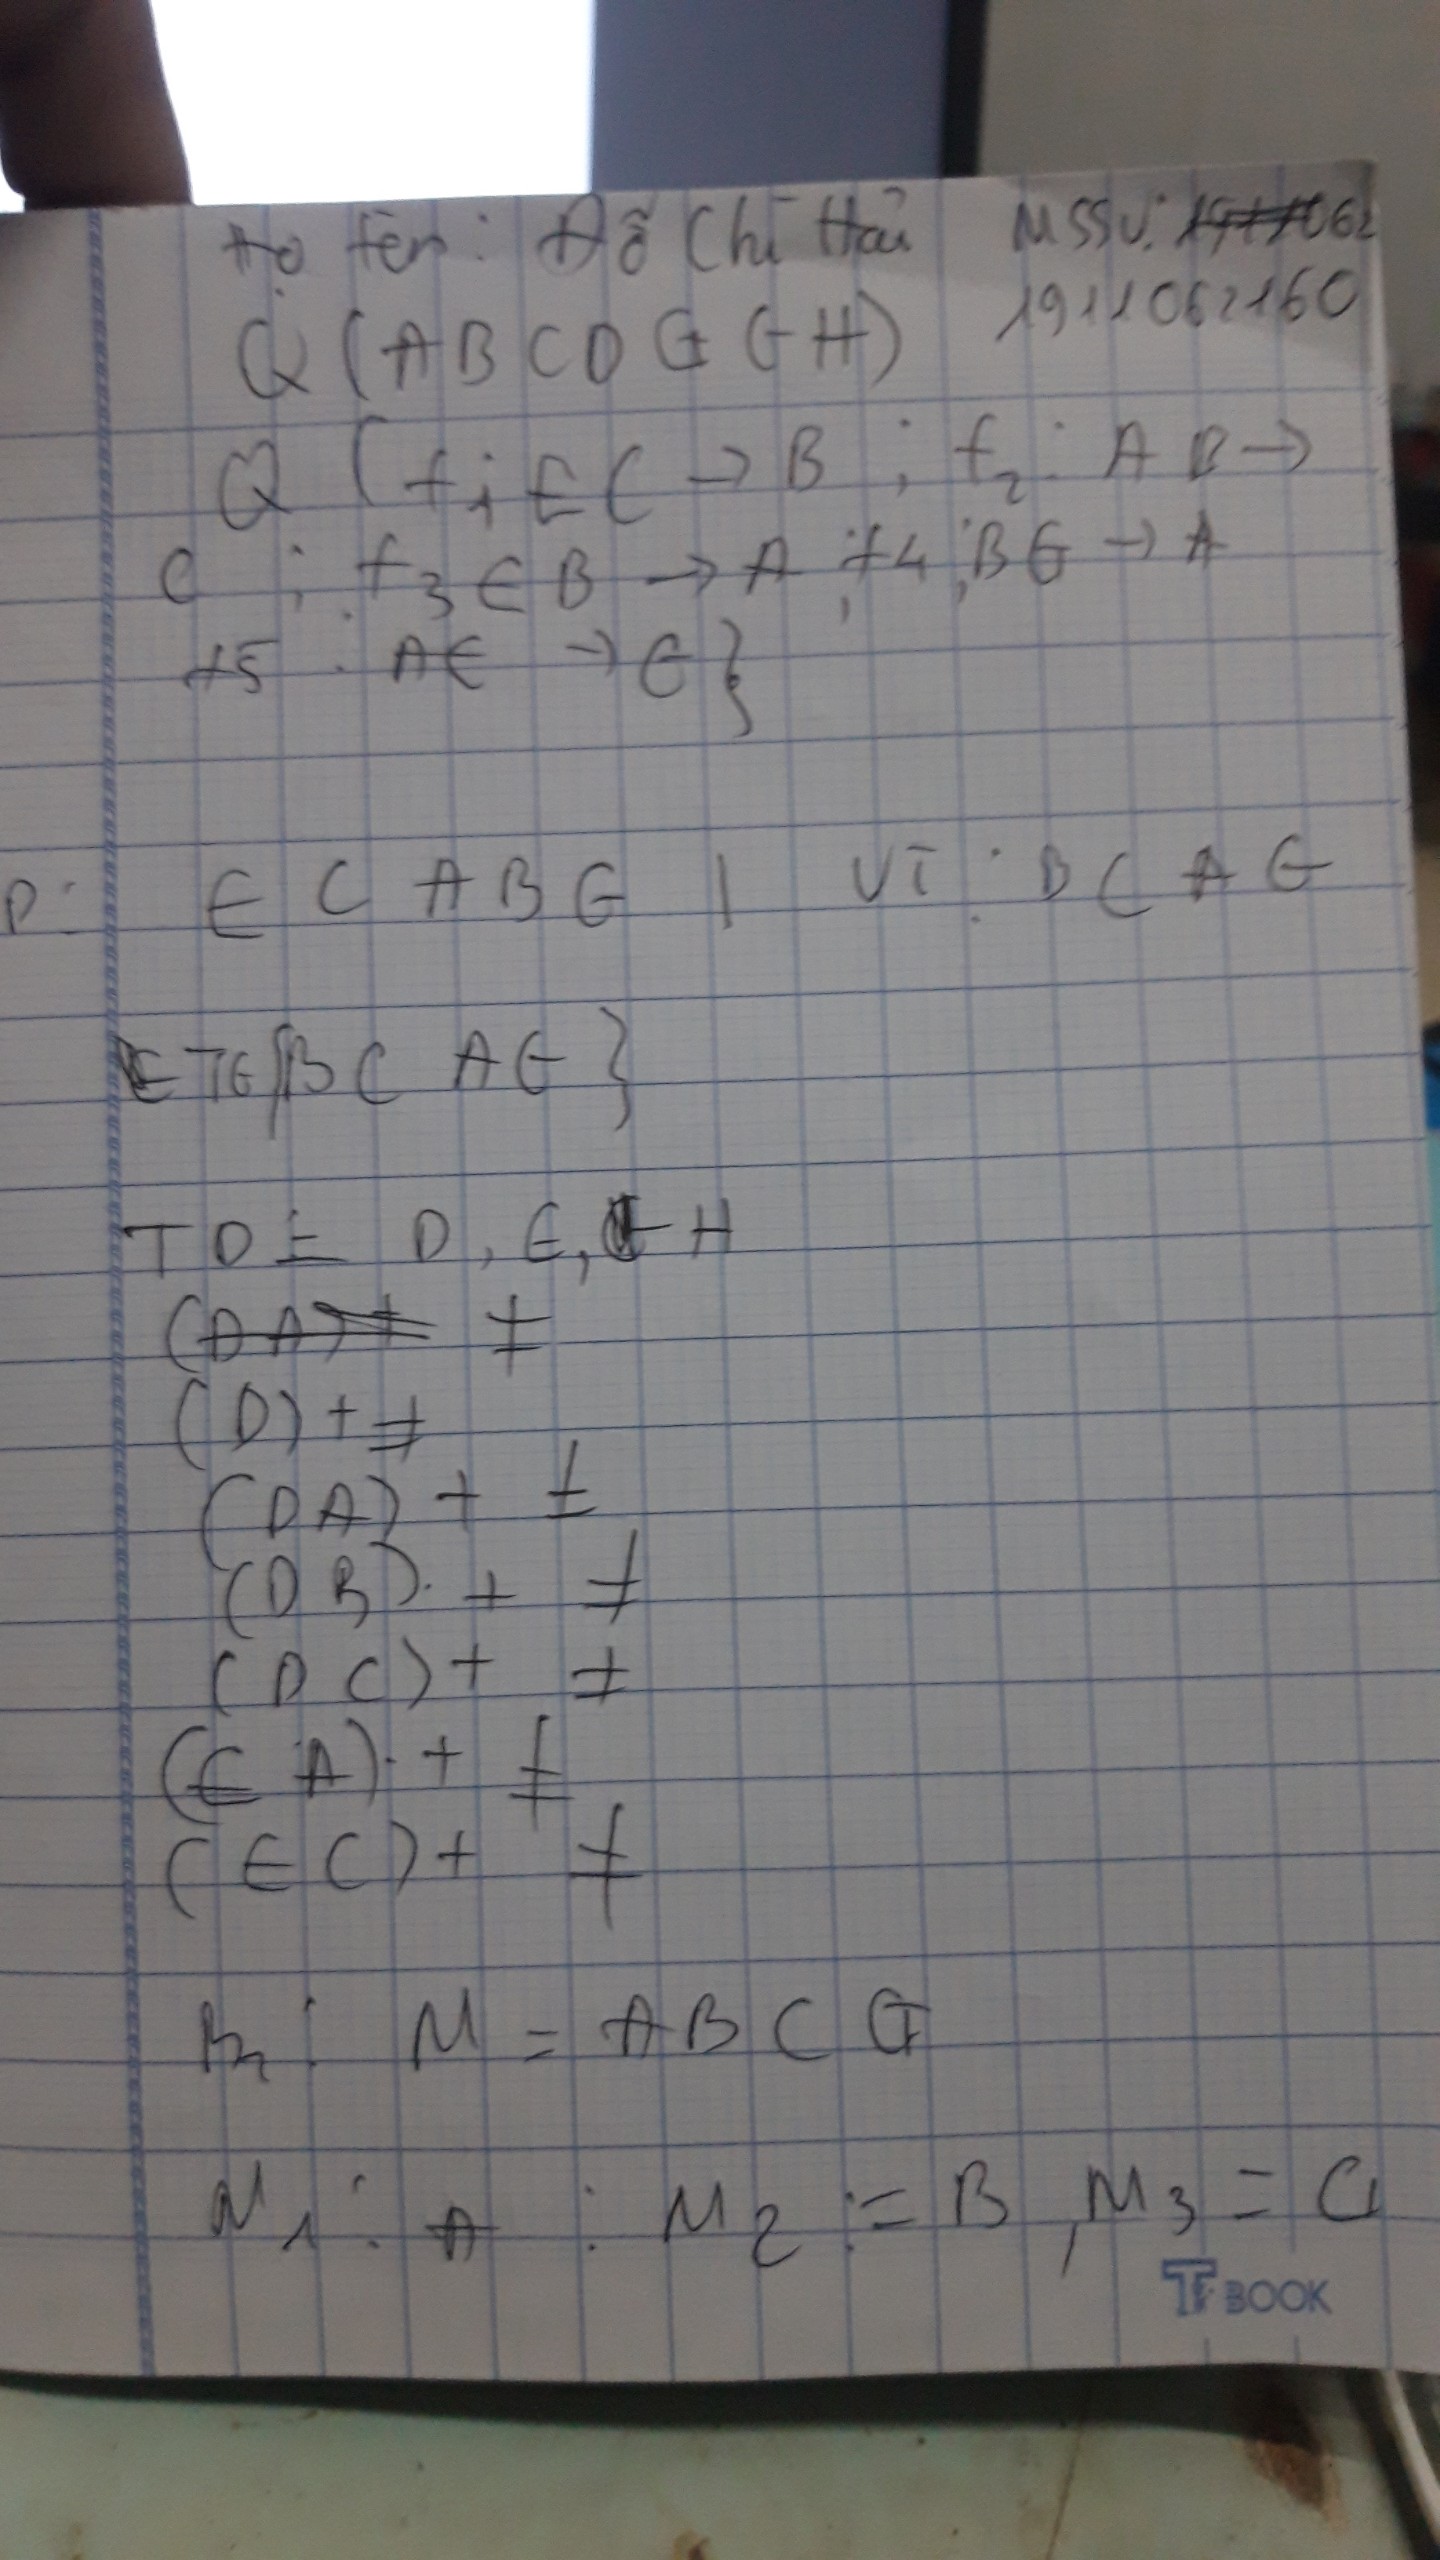 Họ tên: Đỗ Chí Hải MSSV:
1911062160
Q (A B C D E G H)
Q ( f1: E C → B ; f2: A B →
C ; f3 E B → A ; f4 ; B G → A
f5 : A E → G }
E C A B G | VT : B C A G
B C A G }
T D = D, E, H
≠
(D) + ≠
(D A) + ≠
(D B) + ≠
(D C) + ≠
(E A) + ≠
(E C) + ≠
M = A B C G
M1 : A : M2 := B , M3 =
TF BOOK